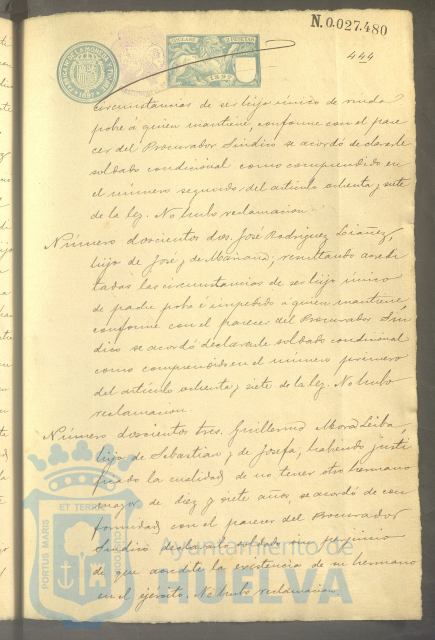 N.0.027.480
444
1897
circunstancias de ser hijo único de viuda
pobre á quien mantiene, conforme con el pare
cer del Procurador Sindico se acordó declararle
soldado condicional como comprendido en
el número segundo del artículo ochenta y siete
de la ley. No hubo reclamacion.
Número doscientos dos. José Rodriguez
hijo de José y de Mariana; resultando acredi
tadas las circunstancias de ser hijo único
de padre pobre é impedido á quien mantiene,
conforme con el parecer del Procurador Sin
dico se acordó declararle soldado condicional
como comprendido en el número primero
del artículo ochenta y siete de la ley. No hubo
reclamacion.
Número doscientos tres. Guillermo Mora Leiba,
hijo de Sebastian y de Josefa, habiendo justi
ficado la cualidad de no tener otro hermano
mayor de diez y siete años, se acordó de con
formidad con el parecer del Procurador
Sindico declararlo soldado sin perjuicio
de que acredite la existencia de su hermano
en el ejército. No hubo reclamacion.
PORTUS MARIS ET TERRÆ CUSTODIA
Ayuntamiento de
HUELVA